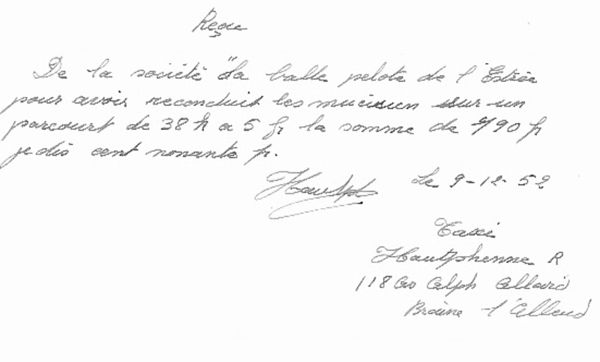 Reçu
De la société "La balle pelote de l'Estrée
pour avoir reconduit les musicien sur un
parcourt de 38 k a 5 fr la somme de 190 fr
je dis cent nonante fr.
Hautph Le 9-12-52
Taxi
Hautphenne R
118 Av Alph Allard
Braine l'Alleud